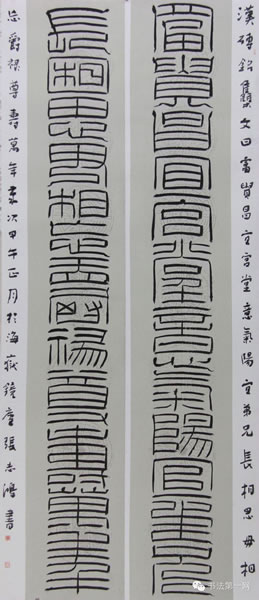 漢磚銘集文曰富貴昌宜宮堂意氣陽宜弟兄長相思毋相
富貴昌宜宮堂意氣陽宜弟兄
長相思毋相忘爵祿尊壽萬年
忘爵祿尊壽萬年歲次甲午正月於海嶽張志鴻書
书法第一网